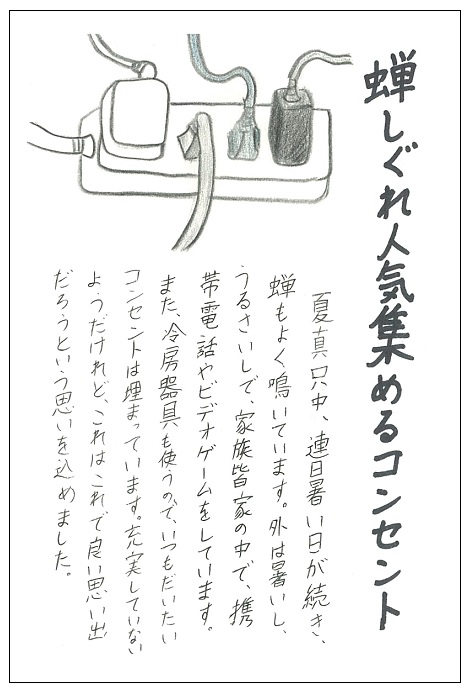 蝉しぐれ人気集めるコンセント
夏真只中、連日暑い日が続き、
蝉もよく鳴いています。外は暑いし、
うるさいしで、家族皆家の中で、携
帯電話やビデオゲームをしています。
また、冷房器具も使うので、いつもだいたい
コンセントは埋まっています。充実していない
ようだけれど、これはこれで良い思い出
だろうという思いを込めました。